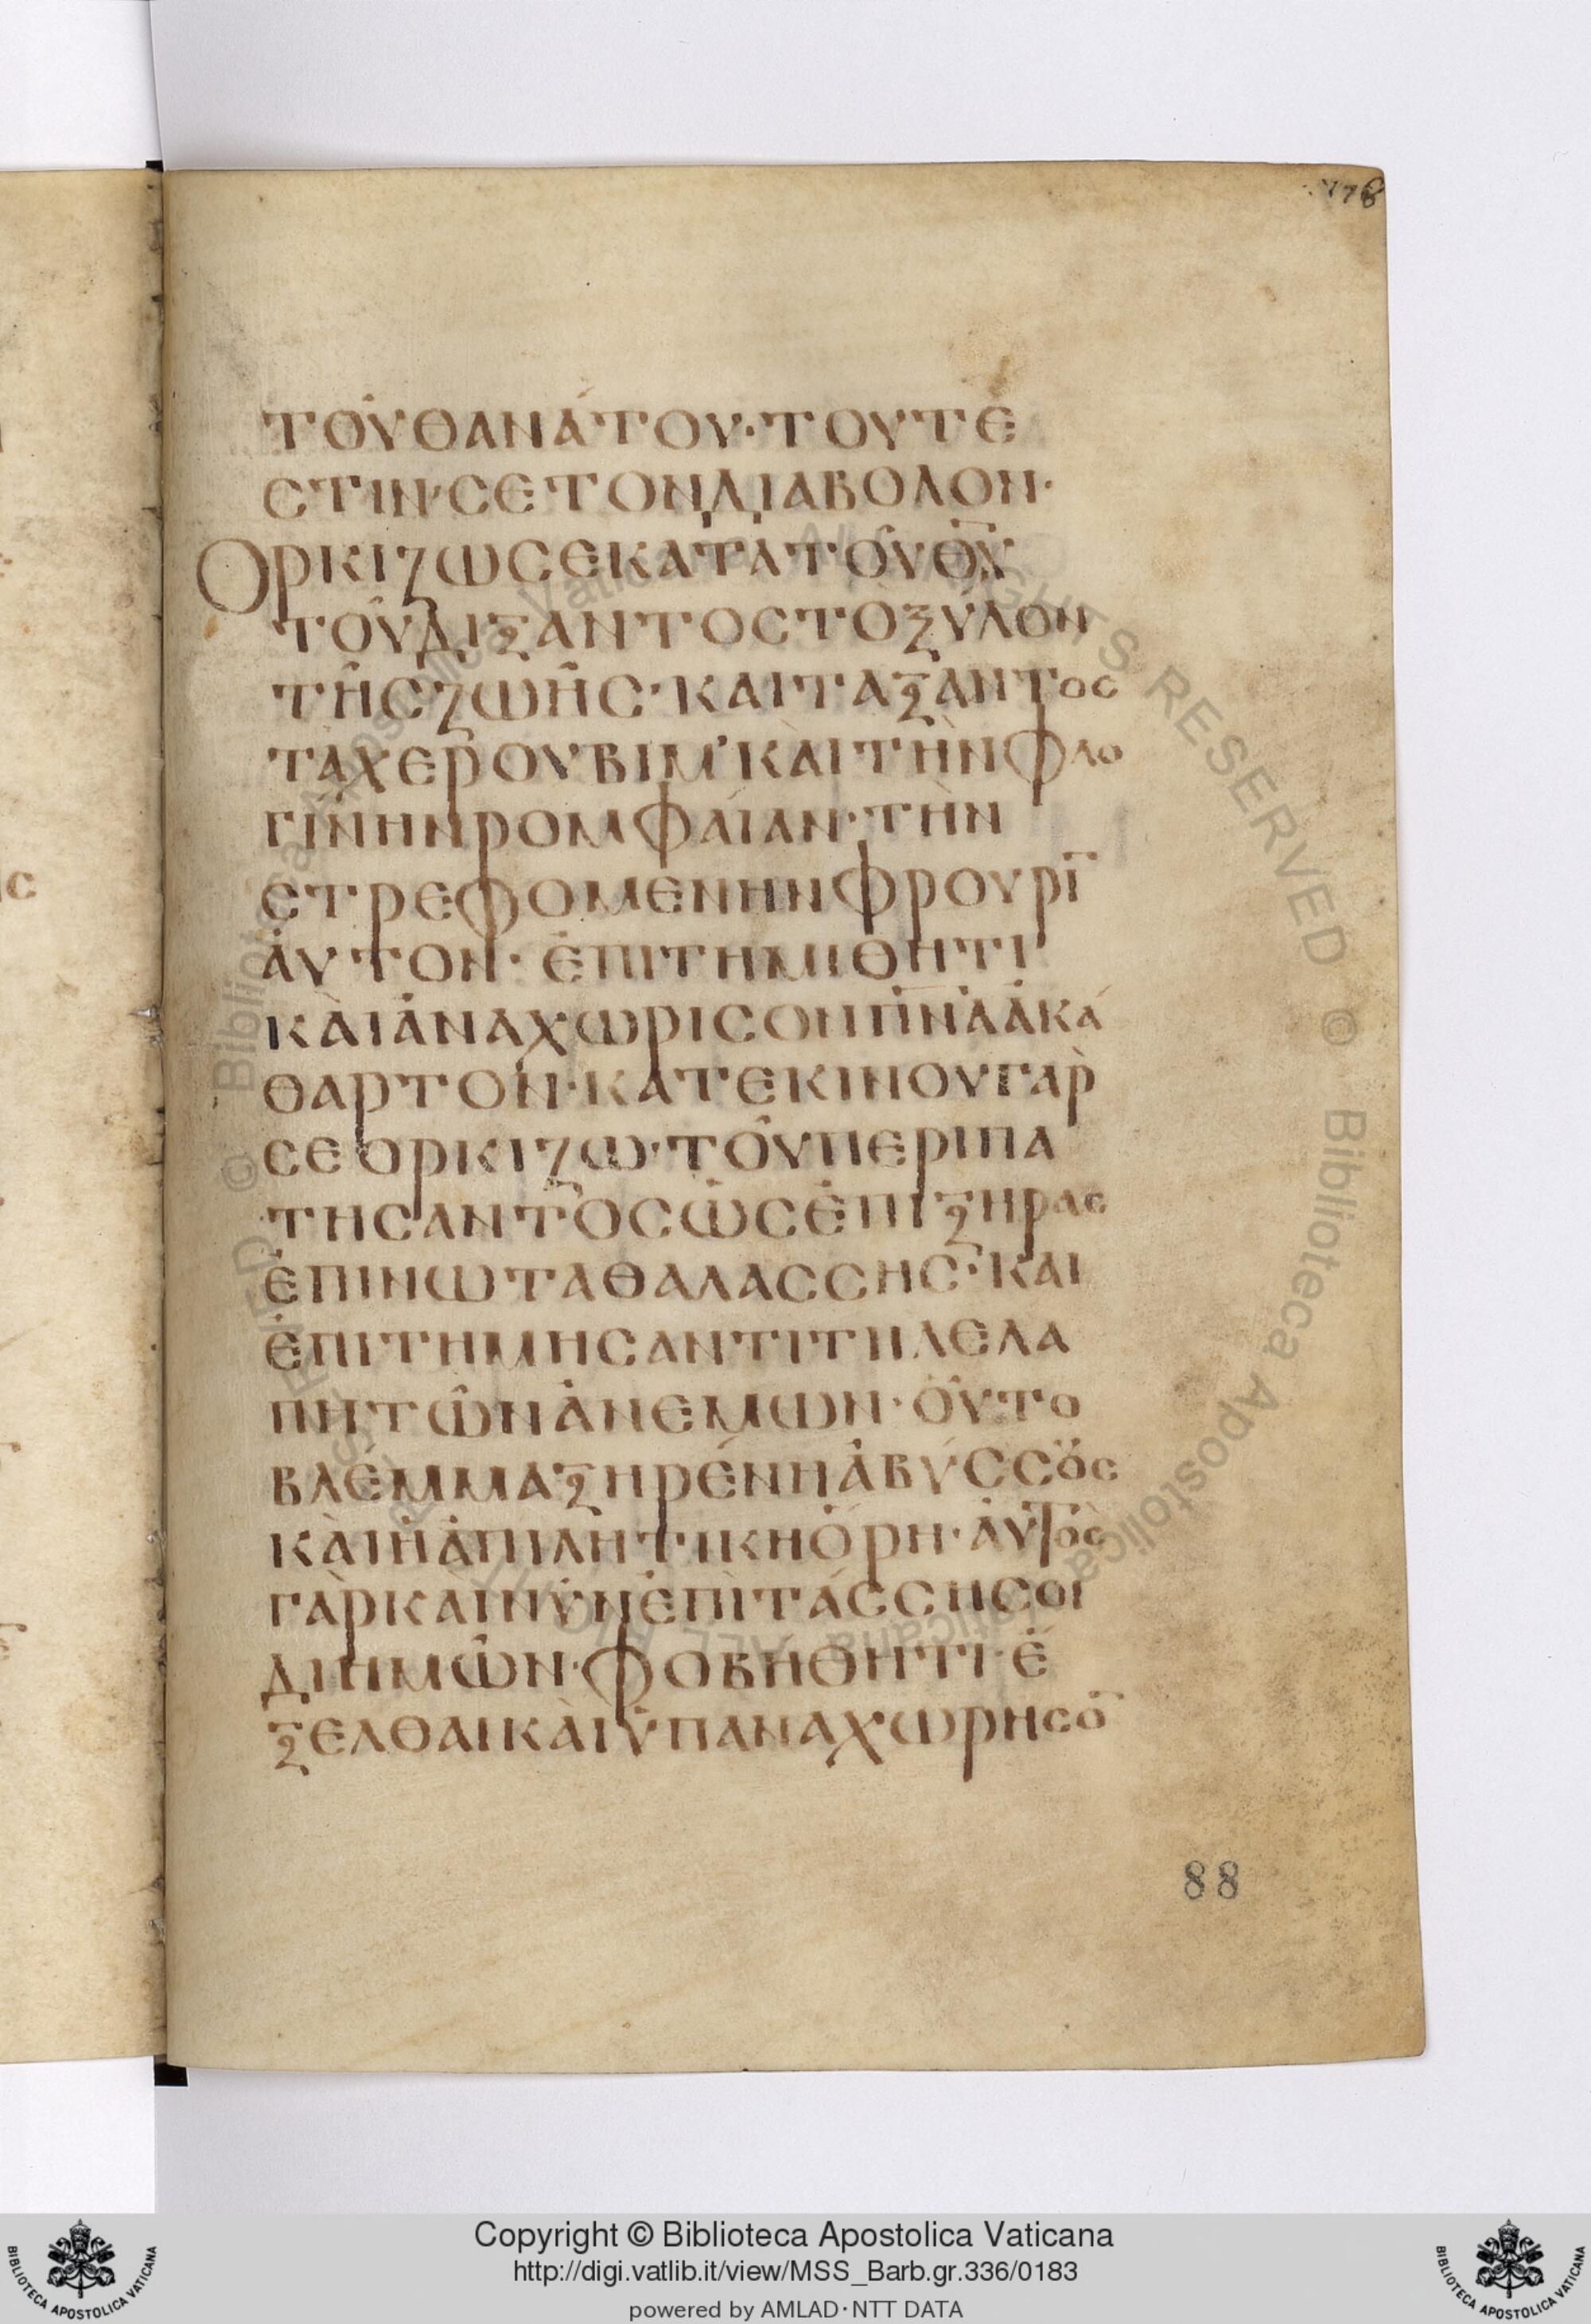 778
ΤΟΥ ΘΑΝΑΤΟΥ· ΤΟΥΤΕ
ΣΤΙΝ· ΣΕ ΤΟΝ ΔΙΑΒΟΛΟΝ·
ΟΡΚΙΖΩ ΣΕ ΚΑΤΑ ΤΟΥ Θ̅Υ̅
ΤΟΥ ΔΙΞΑΝΤΟΣ ΤΟ ΞΥΛΟΝ
ΤΗΣ ΖΩΗΣ· ΚΑΙ ΤΑΞΑΝΤΟΣ
ΤΑ ΧΕΡΟΥΒΙΜ· ΚΑΙ ΤΗΝ ΦΛΟ
ΓΙΝΗΝ ΡΟΜΦΑΙΑΝ· ΤΗΝ
ΣΤΡΕΦΟΜΕΝΗΝ ΦΡΟΥΡΙ̅
ΑΥΤΟΝ· ΕΠΙΤΗΜΙΘΗΤΙ
ΚΑΙ ΑΝΑΧΩΡΙΣΟΝ Π̅Ν̅Α̅ ΑΚΑ
ΘΑΡΤΟΝ· ΚΑΤ ΕΚΙΝΟΥ ΓΑΡ
ΣΕ ΟΡΚΙΖΩ· ΤΟΥ ΠΕΡΙΠΑ
ΤΗΣΑΝΤΟΣ ΩΣ ΕΠΙ ΞΗΡΑΣ
ΕΠΙ ΝΩΤΑ ΘΑΛΑΣΣΗΣ· ΚΑΙ
ΕΠΙΤΗΜΗΣΑΝΤΙ ΤΗ ΛΕΛΑ
ΠΗ ΤΩΝ ΑΝΕΜΩΝ· ΟΥ ΤΟ
ΒΛΕΜΜΑ ΞΗΡΕΝΗ ΑΒΥΣΣΟΣ
ΚΑΙ Η ΑΠΙΛΗ ΤΙΚΗ ΟΡΗ· ΑΥΤΟΣ
ΓΑΡ ΚΑΙ ΝΥΝ ΕΠΙΤΑΣΣΗ ΣΟΙ
ΔΙ ΗΜΩΝ· ΦΟΒΗΘΗΤΙ· Ε
ΞΕΛΘΑΙ ΚΑΙ ΥΠΑΝΑΧΩΡΗΣΟ̅
88
© Biblioteca Apostolica Vaticana ALL RIGHTS RESERVED © Biblioteca Apostolica Vaticana ALL RIGHTS RESERVED
Copyright © Biblioteca Apostolica Vaticana
http://digi.vatlib.it/view/MSS_Barb.gr.336/0183
powered by AMLAD·NTT DATA
BIBLIOTECA APOSTOLICA VATICANA
BIBLIOTECA APOSTOLICA VATICANA